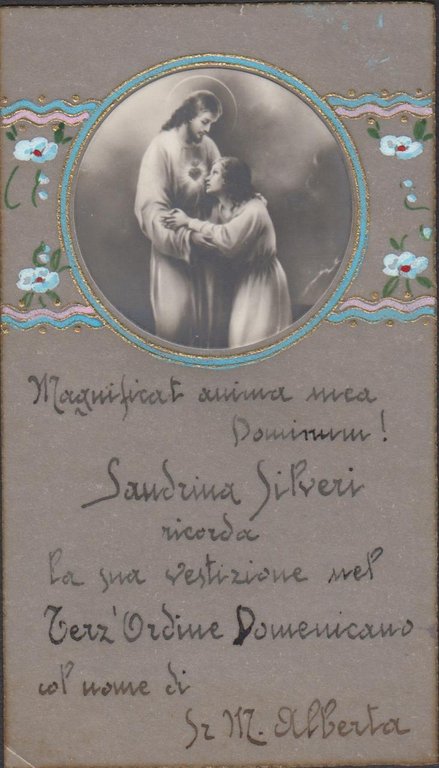 Magnificat anima mea
Dominum!
Sandrina Silveri
ricorda
la sua vestizione nel
Terz'Ordine Domenicano
col nome di
Sr M. Alberta